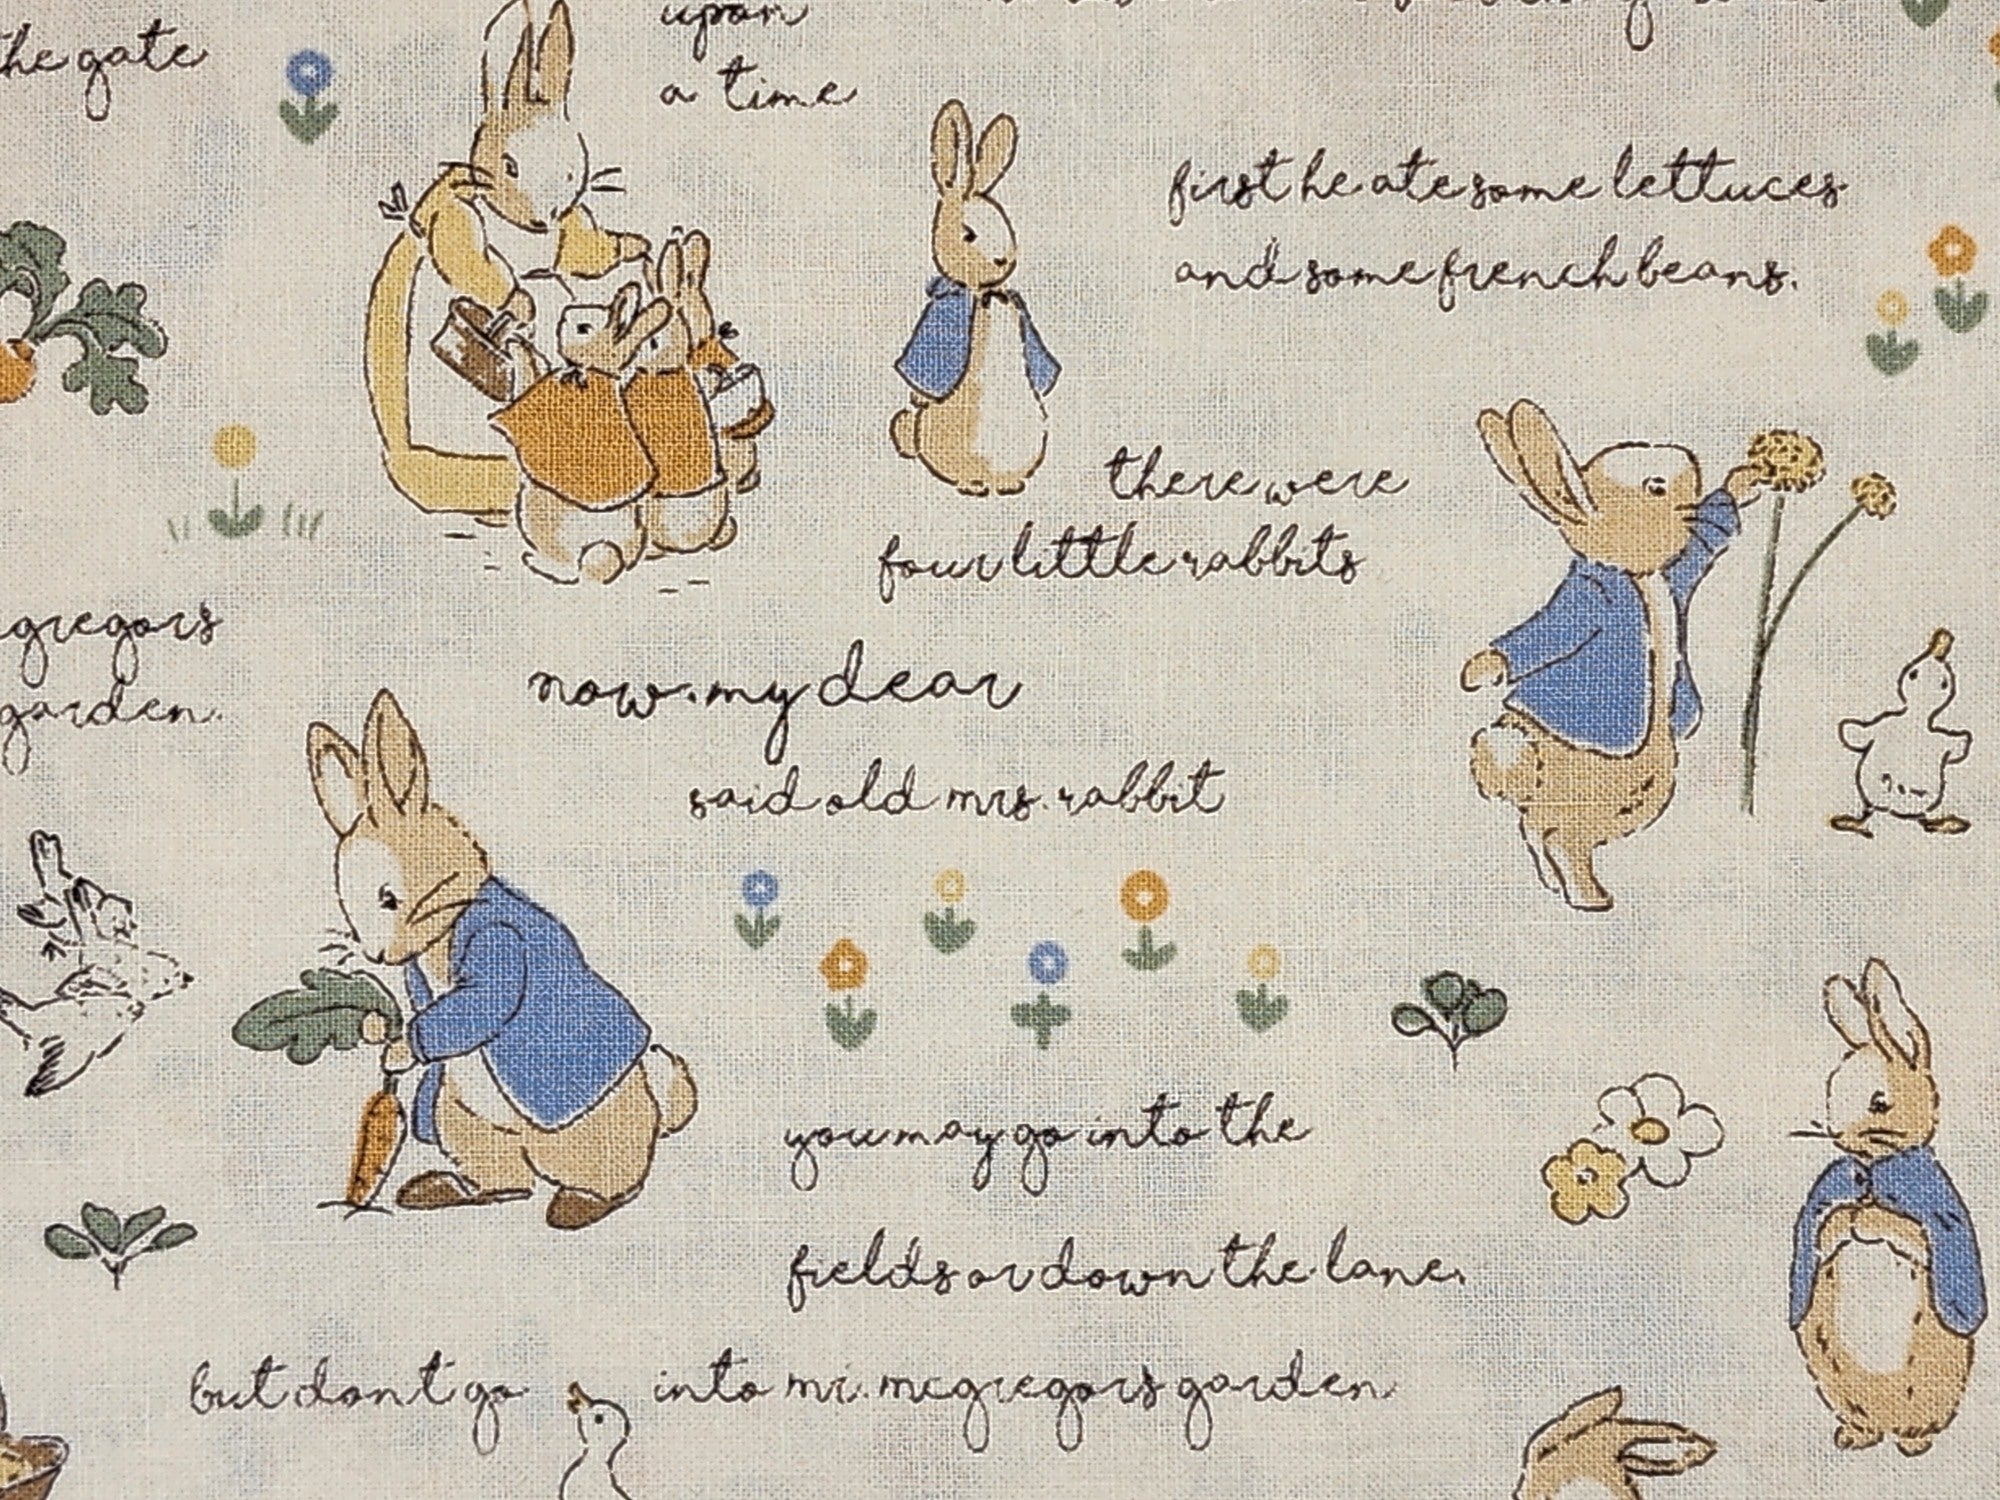 the gate
upon
a time
first he ate some lettuces
and some french beans.
there were
four little rabbits
gregors
garden.
now. my dear
said old mrs. rabbit
you may go into the
fields or down the lane.
but dont go into mr. mcgregors garden